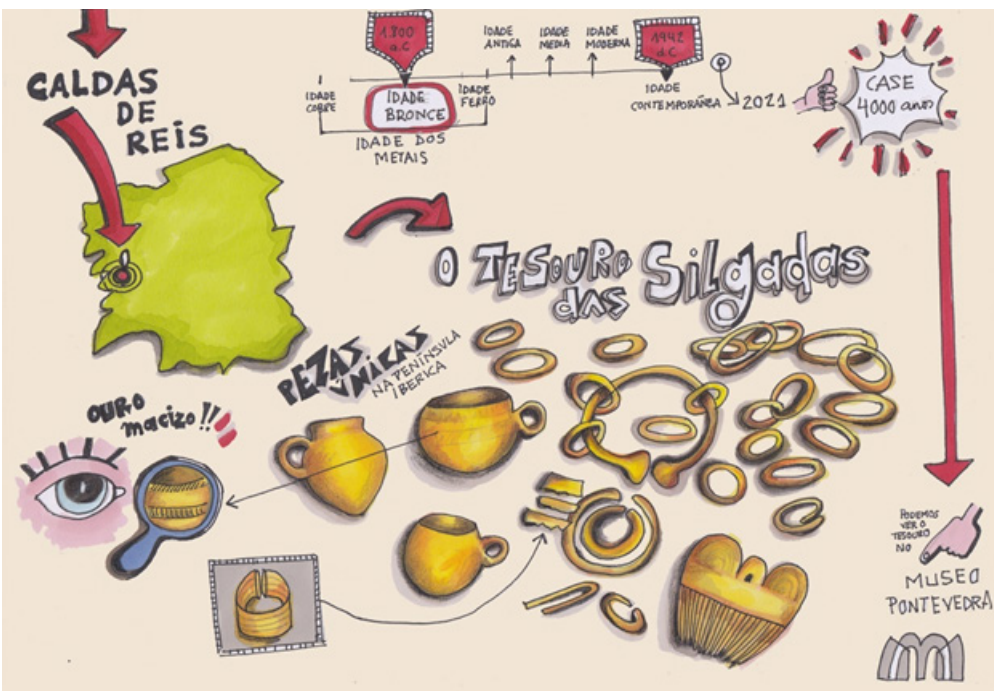 CALDAS
DE
REIS
1.800
a.C
IDADE
COBRE
IDADE
BRONCE
IDADE
FERRO
IDADE DOS
METAIS
IDADE
ANTIGA
IDADE
MEDIA
IDADE
MODERNA
1942
d.C
IDADE
CONTEMPORÁNEA
2021
CASE
4000 anos
O TESOURO
das
Silgadas
PEZAS
ÚNICAS
NA PENÍNSULA
IBERICA
OURO
macizo!!
PODEMOS
VER O
TESOURO
NO
MUSEO
PONTEVEDRA